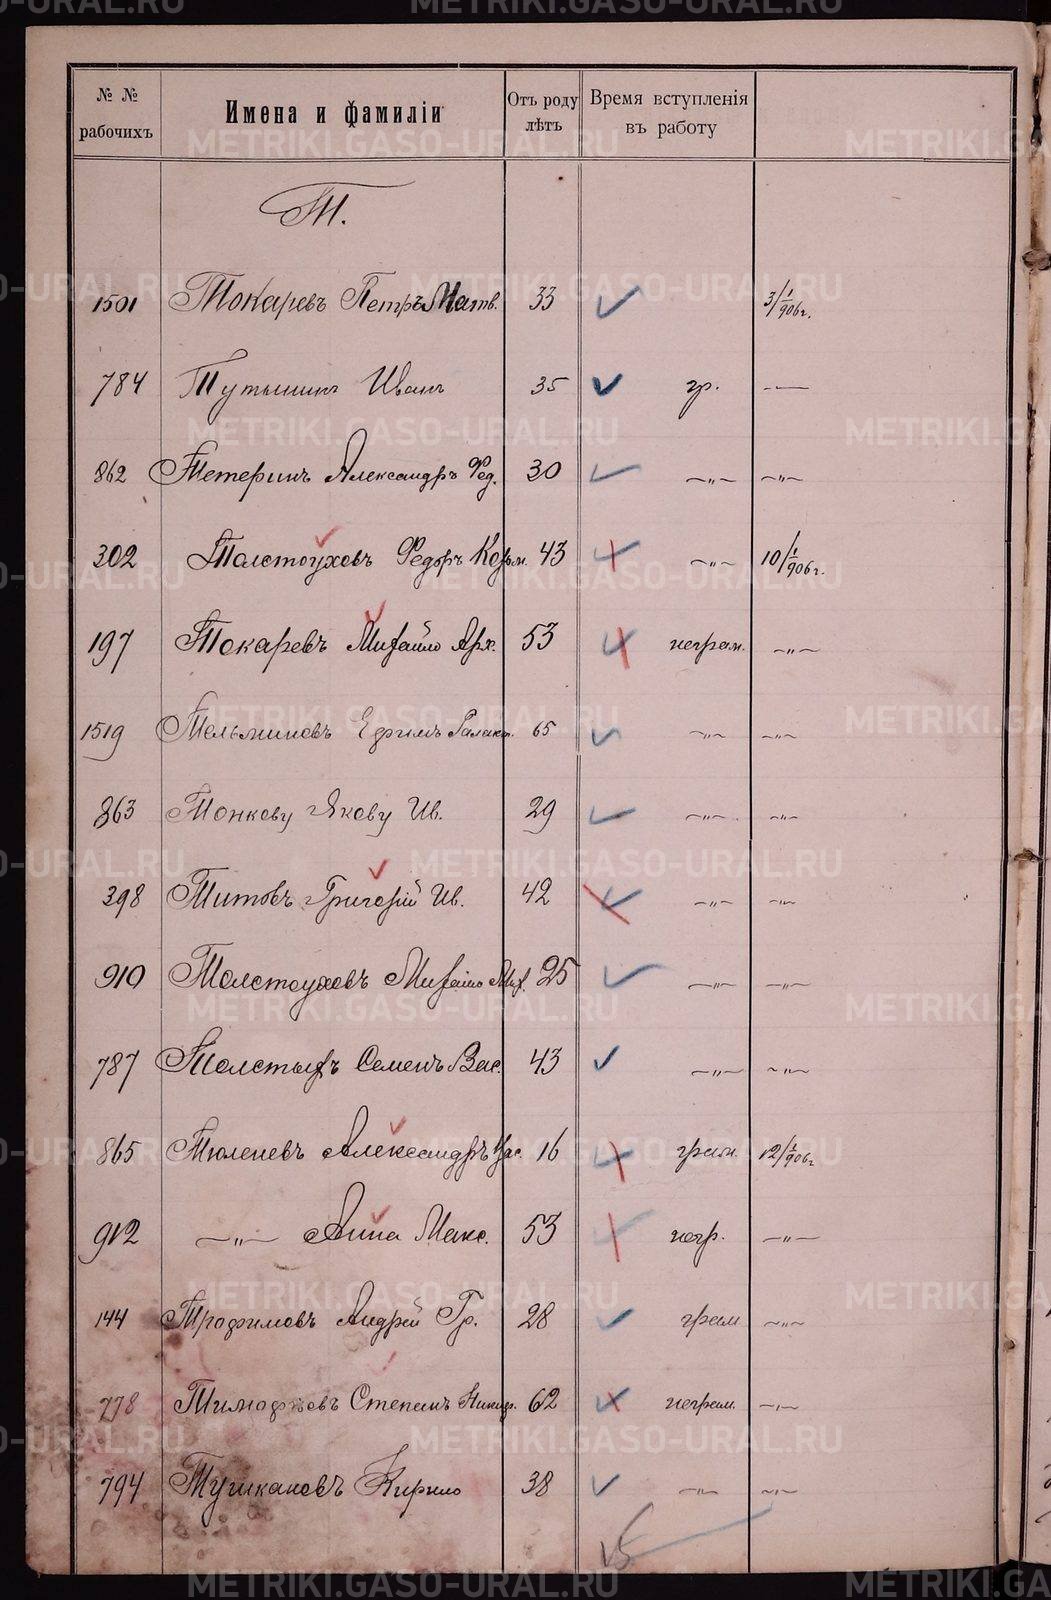 № № рабочихъ Имена и фамиліи Отъ роду лѣтъ Время вступленія въ работу
Т.
1501 Токаревъ Петръ Матв. 33 3/1/906г.
784 Иванъ 35 гр. —
862 Тетеринъ Александръ Фед. 30 —„— —„—
302 Толстоуховъ Федоръ Козьм. 43 —„— 10/1/906г.
197 Токаревъ Михайло Арх. 53 неграм. —„—
1519 Ефимъ Галакт. 65 —„— —„—
863 Тонкову Якову Ив. 29 —„— —„—
398 Титовъ Григорій Ив. 42 —„— —„—
910 Толстоуховъ Михайло Мих. 25 —„— —„—
787 Толстыхъ Семенъ Вас. 43 —„— —„—
865 Тюленевъ Александръ 16 грам. 12/1/906г
912 —„— Анна Макс. 53 негр. —„—
144 Трофимовъ Андрей Гр. 28 грам —„—
778 Тимофѣевъ Степанъ Никиф. 62 неграм. —„—
794 Тушкановъ Кирило 38 —„— —„—
15
METRIKI.GASO-URAL.RU